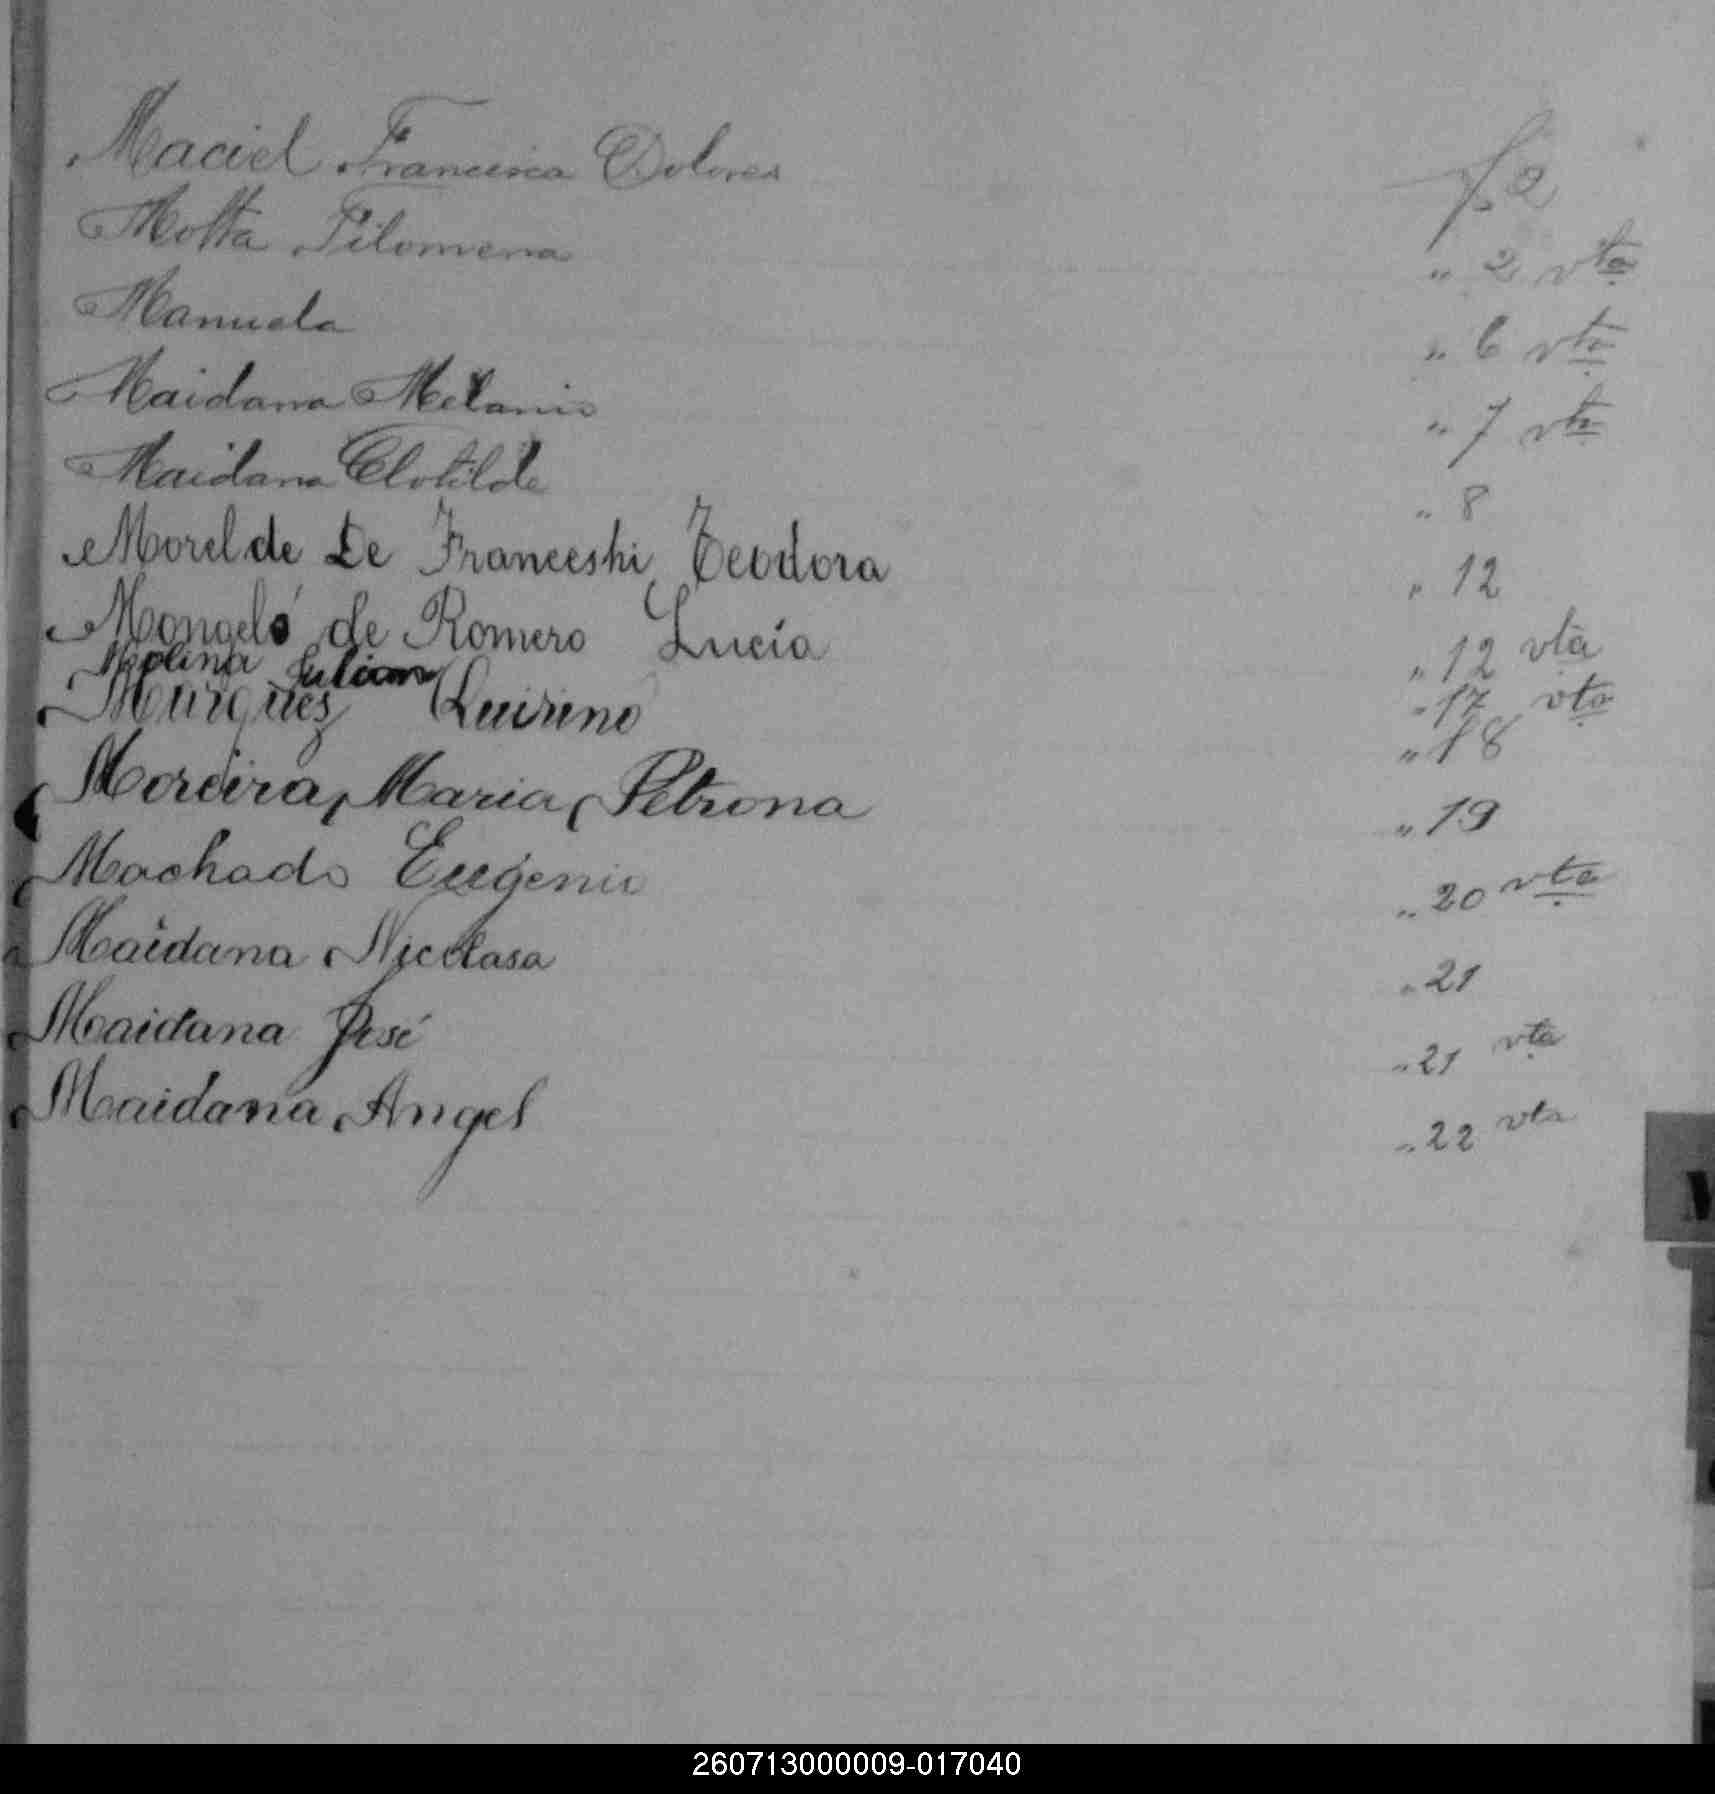 Maciel Francisca Dolores f. 2
Motta Filomena " 2 vta
Manuela " 6 vta
Maidana Melanio " 7 vta
Maidana Clotilde " 8
Morel de De Franceshi Teodora " 12
Mongeló de Romero Lucía " 12 vta
Molina Julian " 17 vta
Marques Quirino " 18
Moreira, Maria, Petrona " 19
Machado Eugenio " 20 vta
Maidana Nicolasa " 21
Maidana José " 21 vta
Maidana Angel " 22 vta
M
260713000009-017040